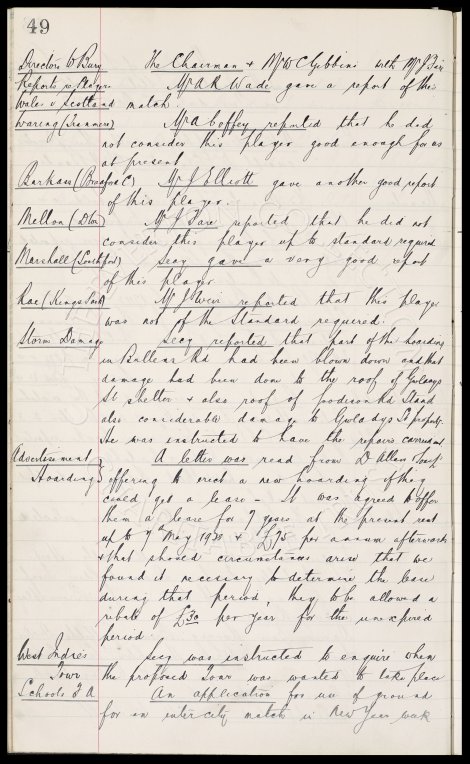 49
Directors to Bury The Chairman & Mr W C Gibbins with Mr J Fare
Reports re Players Mr A R Wade gave a report of the
Wales v Scotland match.
Waring (Tranmere) Mr A Coffey reported that he did
not consider this player good enough for us
at present
Barkass (Bradford C) Mr J Elliott gave another good report
of this player.
Mellon (D'ton) Mr J Fare reported that he did not
consider this player up to standard required
Marshall (Southport) Secy gave a very good report
of this player
Rae (Kings Park) Mr J Weir reported that this player
was not of the Standard required.
Storm Damage Secy reported that part of the hoarding
in Bullens Rd had been blown down and that
damage had been done to the roof of Gwladys
St shelter & also roof of Goodison Rd Stand
also considerable damage to Gwladys St property.
He was instructed to have the repairs carried out
Advertisement A letter was read from D Allan &
Hoarding offering to erect a new hoarding if they
could get a lease - It was agreed to offer
them a lease for 7 years at the present rent
up to May 1930 & £75 per annum afterwards
& that should circumstances arise that we
found it necessary to determine the lease
during that period, they to be allowed a
rebate of £30 per year for the unexpired
period.
West Indies Secy was instructed to enquire when
Tour the proposed Tour was wanted to take place
Schools F A An application for use of ground
for an inter city match in New Year week